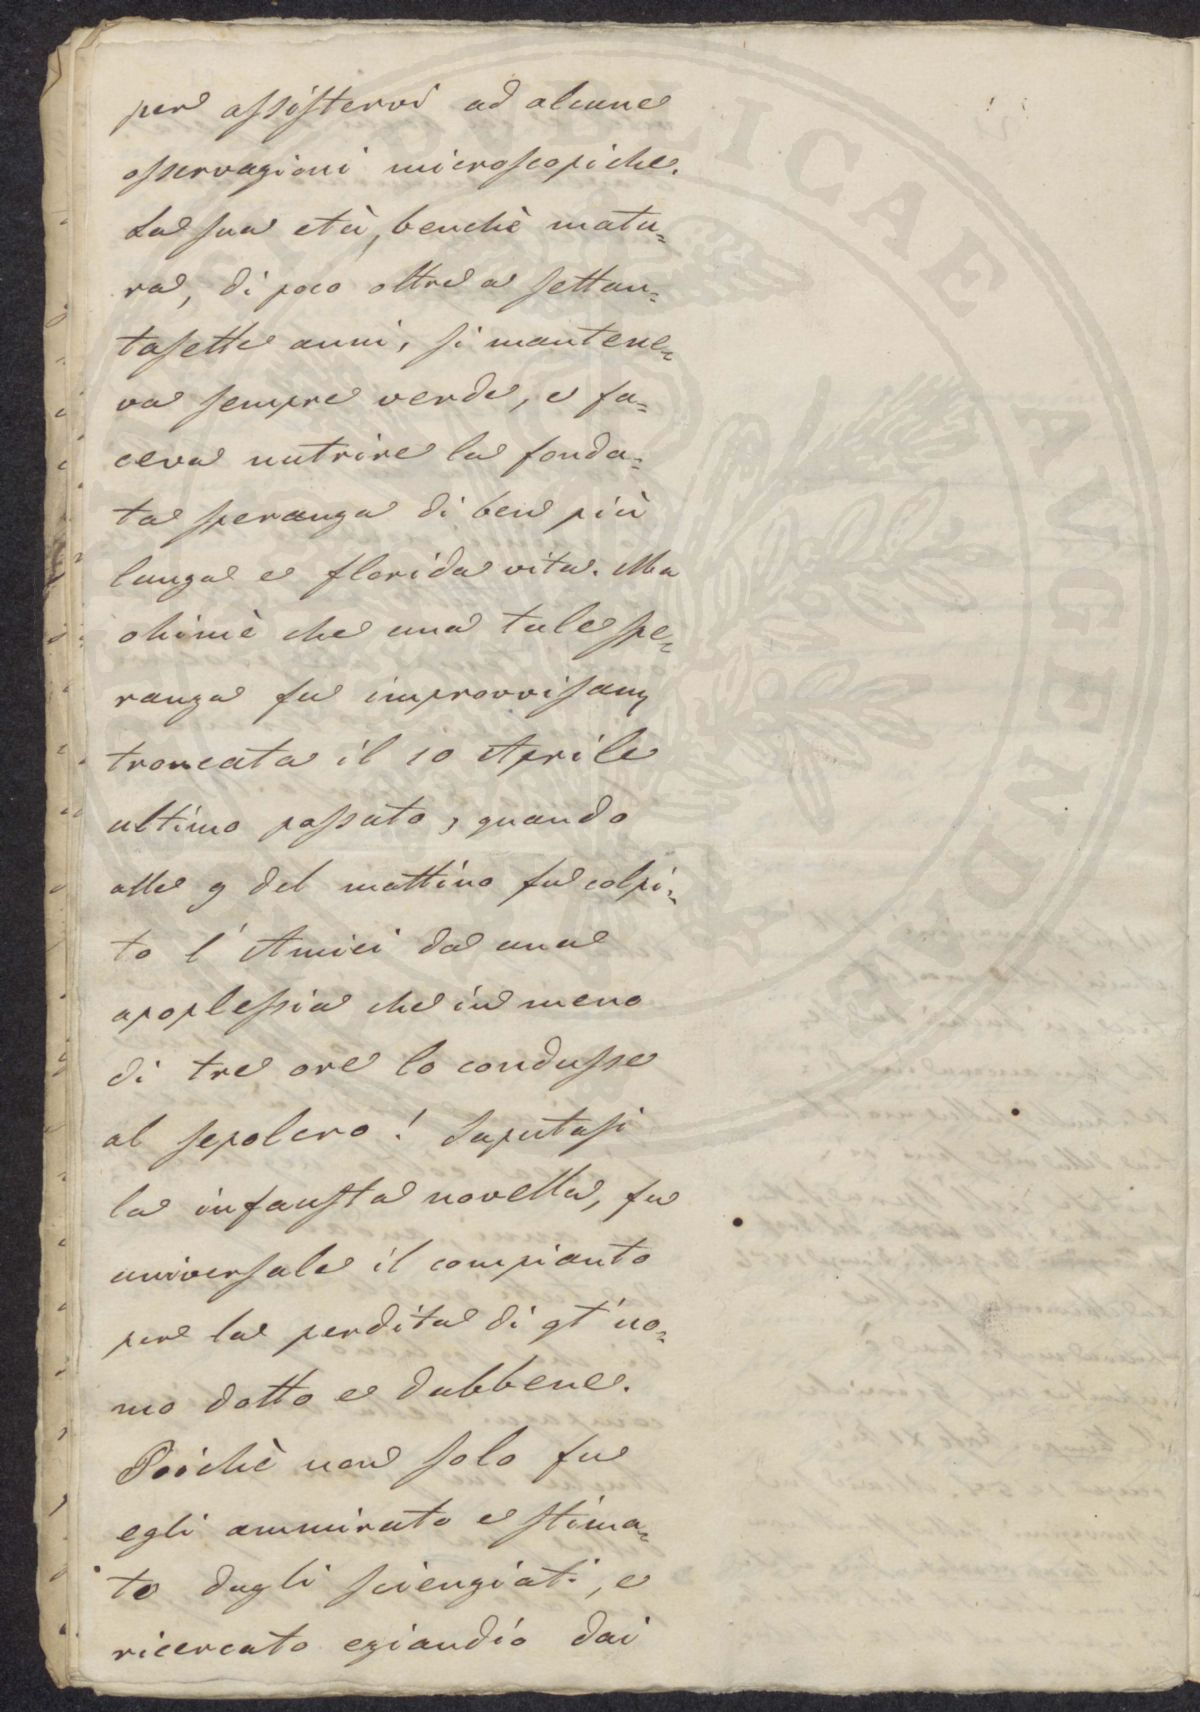 per assistervi ad alcune
osservazioni microscopiche.
La sua età, benchè matu=
ra, di poco oltre a settan=
tasette anni, si mantene=
va sempre verde, e fa=
ceva nutrire la fonda=
ta speranza di ben più
lunga e florida vita. Ma
ohimè che una tale spe=
ranza fu improvvisam
troncata il 10 Aprile
ultimo passato, quando
alle 9 del mattino fu colpi=
to l'Amici da una
apoplessia che in meno
di tre ore lo condusse
al sepolcro! Saputasi
la infausta novella, fu
universale il compianto
per la perdita di qt'uo=
mo dotto e dabbene.
Poichè non solo fu
egli ammirato e stima=
to dagli scienziati, e
ricercato eziandio dai
PUBLICAE AUGEN